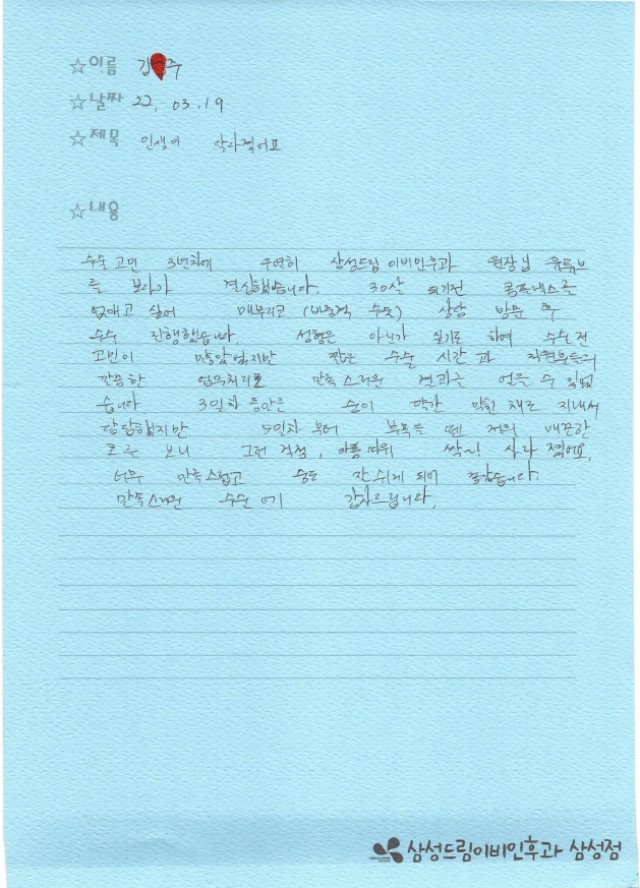 ☆이름 김 주
☆날짜 22. 03. 19
☆제목 인생이 달라졌어요
☆내용
수술 고민 3년차에 우연히 삼성드림이비인후과 원장님 유튜브
를 보다가 결심했습니다. 30살 되기전 콤플렉스를
없애고 싶어 매부리코 (비중격 수술) 상담 방문 후
수술 진행했습니다. 성형은 아닌가 싶기도 하여 수술 전
고민이 많았었지만 짧은 수술 시간과 직원분들의
꼼꼼한 염려처리로 만족스러운 결과를 얻을 수 있었
습니다 3일차 동안은 숨이 약간 막힌 채로 지내서
답답했지만 5일차 부터 부목을 뗀 저의 매끈한
코를 보니 그런 걱정, 아픔 따위 싹~! 사라졌어요,
너무 만족스럽고 숨도 잘 쉬게 되어 좋았습니다.
만족스러운 수술에 감사드립니다.
삼성드림이비인후과 삼성점